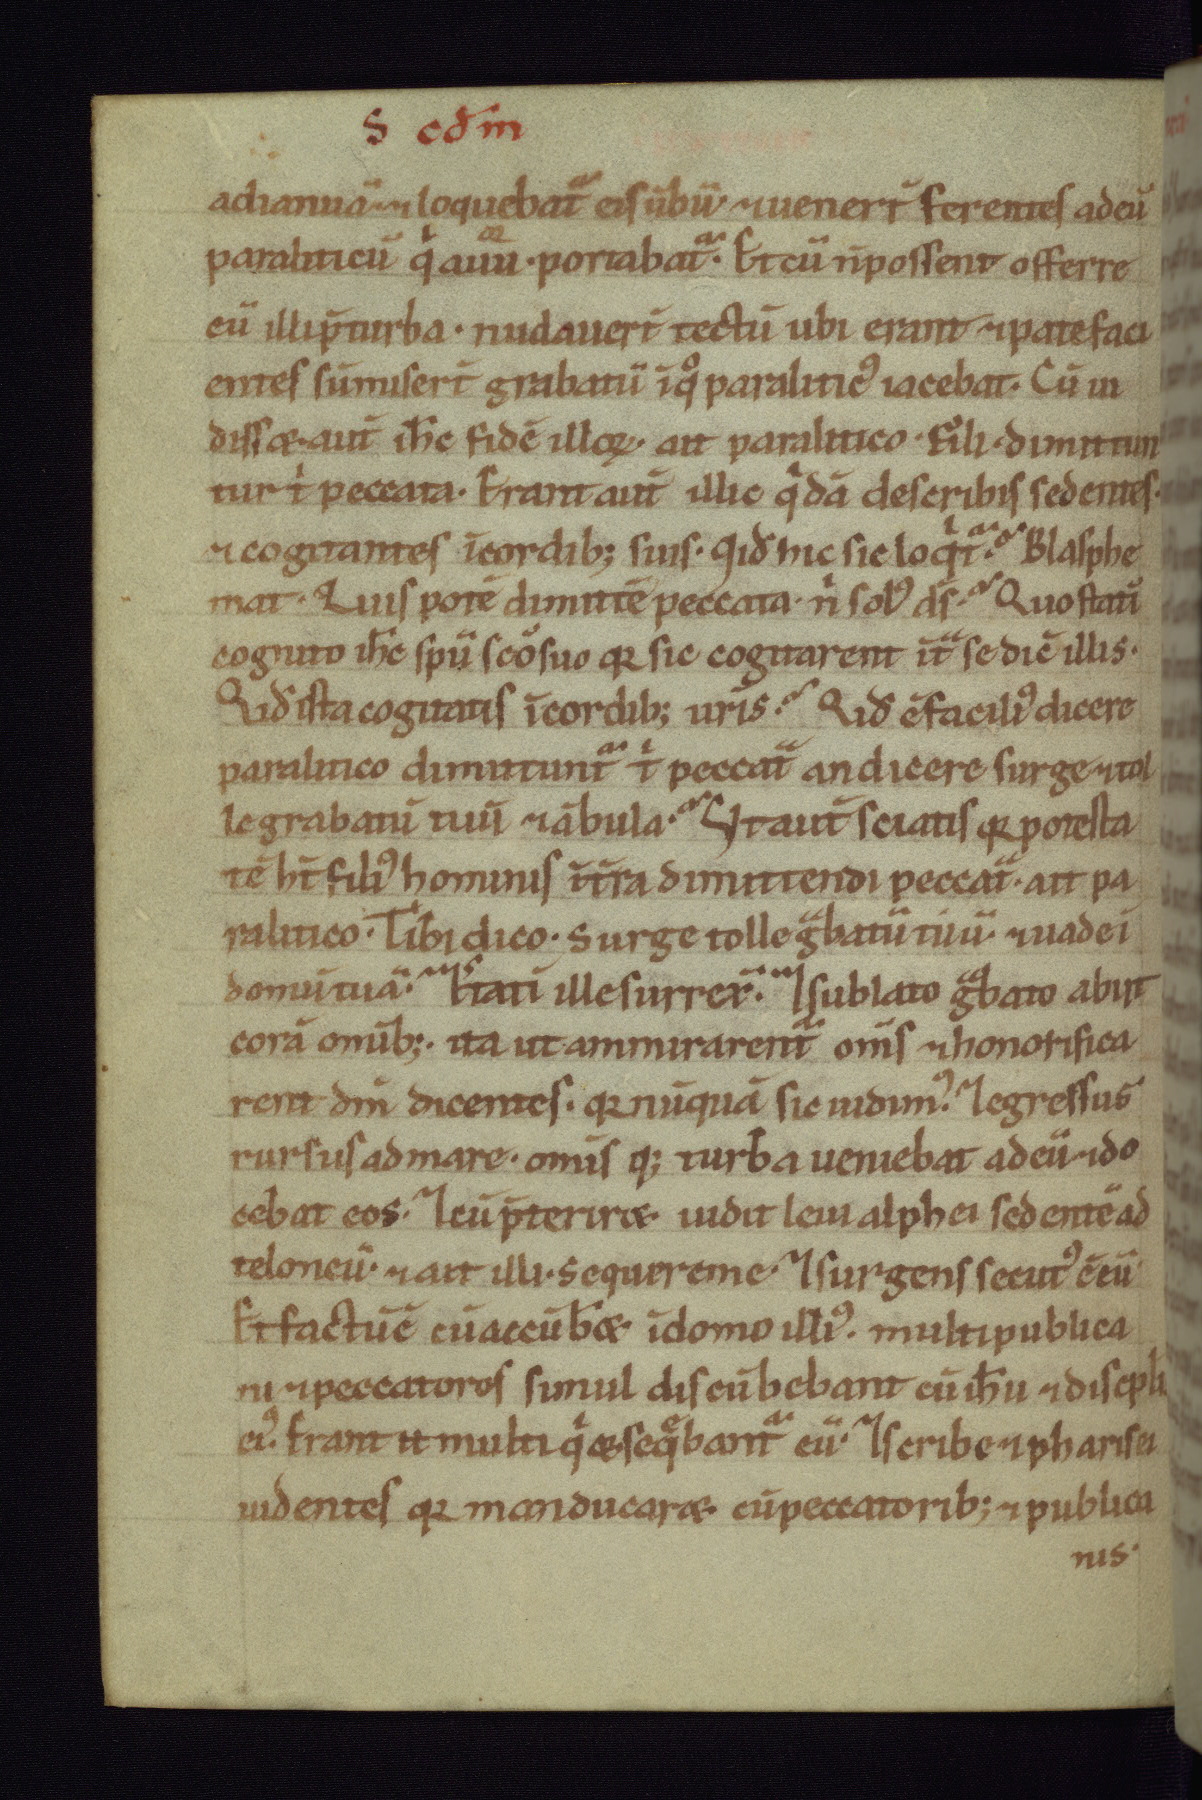 S cđm
adianuā ⁊ loquebat̄ eis ūbū· ⁊ uenert̄ ferentes adeū
paraliticū q̍ aiiiiu· portabat̄· Et cū n̄possent offerre
eū illi p̄ turba· nudauert̄ tectū ubi erant ⁊ patefaci
entes sūmisert̄ grabatū īqͦ paralitic᷒ iacebat· Cū ui
dissæ· aut̄ ih̄c fidē illoꝝ· ait paralitico· Fili· dimittun
tur t̍ peccata· Erant aut̄ illic q̍dā describis sedentes·
⁊ cogitantes īcordib; suis· Qid hic sic loq̍t̄· Blasphe
mat· Quis potē dimittē peccata· n̍ sol᷒ ds̄· Quo statī
cognito ih̄c spū scōsuo qꝛ sic cogitarent īt̄ se dic̄ illis·
Qid ista cogitatis īcordib; ur̄is· Qid ē facili᷒ dicere
paralitico dimittunt̄ t̍ peccat̄ an dicere surge ⁊ tol
le grabatū tuū ⁊ ābula· Ut aut̄ sciatis qꝛ potesta
tē ht̄ fili᷒ hominis īt̄ra dimittendi peccat̄· ait pa
ralitico· Tibi dico· Surge tolle gͣbatū tuū· ⁊ uade ī
domū tuā· Et statī ille surrex̄· ⁊ sublato gͣbato abiit
corā omīb;· ita ut ammirarent̄ oms̄ ⁊ honorifica
rent dm̄ dicentes· qꝛ nūquā sic uidim᷒· ⁊ egressus
rursus ad mare· omīs q; turba ueniebat adeū ⁊ do
cebat eos· ⁊ cū p̄teriræ· uidit leui alphei sedentē ad
teloneū· ⁊ ait illi· Sequere me· ⁊ surgens secut᷒ ē eū
Et factū ē cū accūb̄æ· īdomo illi᷒· multi publica
ni ⁊ peccatores simul discūbebant cū ih̄u ⁊ discipli
ei᷒· Erant n̄ multi q̍ æ· seqͤbant̄ eū· ⁊ scribe ⁊ pharisei
uidentes qꝛ manducaræ· cū peccatorib; ⁊ publica
nis·